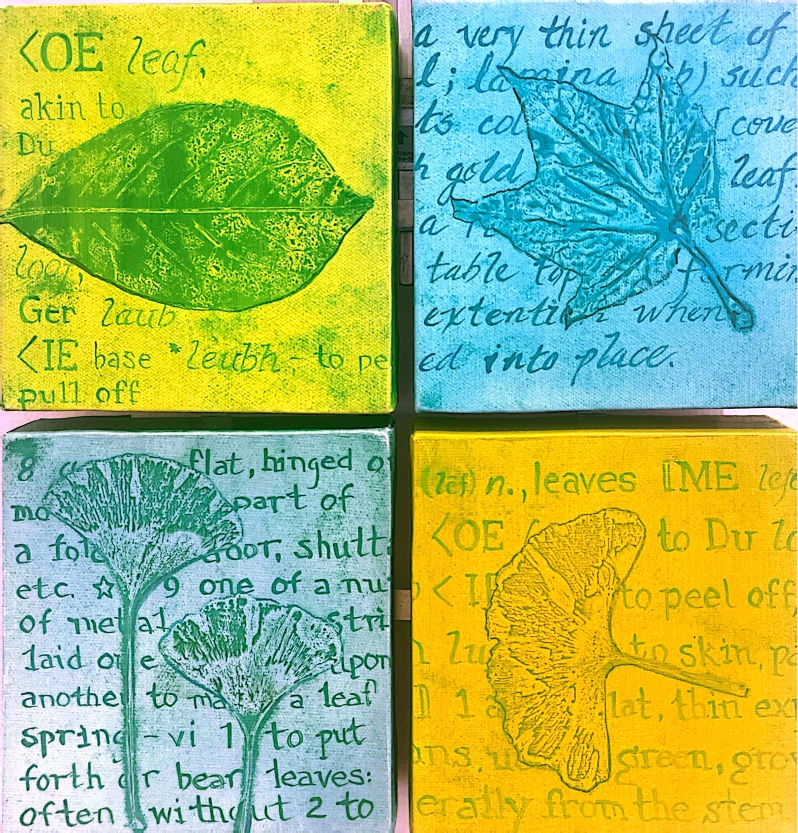 <OE leaf,
akin to
Du
loof,
Ger laub
<IE base *leubh- to pe
pull off
a very thin sheet of
l; lamina b) such
ts col [cove
h gold leaf.
a secti
table top forming
extention when
ed into place.
8 a flat, hinged o
mo part of
a fold door, shutt
etc. ☆ 9 one of a nu
of metal stri
laid one upon
another to ma a leaf
spring - vi 1 to put
forth or bear leaves:
often without 2 to
(lēf) n., leaves [ME lefe
<OE to Du lo
< IE to peel off,
lu to skin, pa
1 a flat, thin exp
ans, u green, grow
erally from the stem